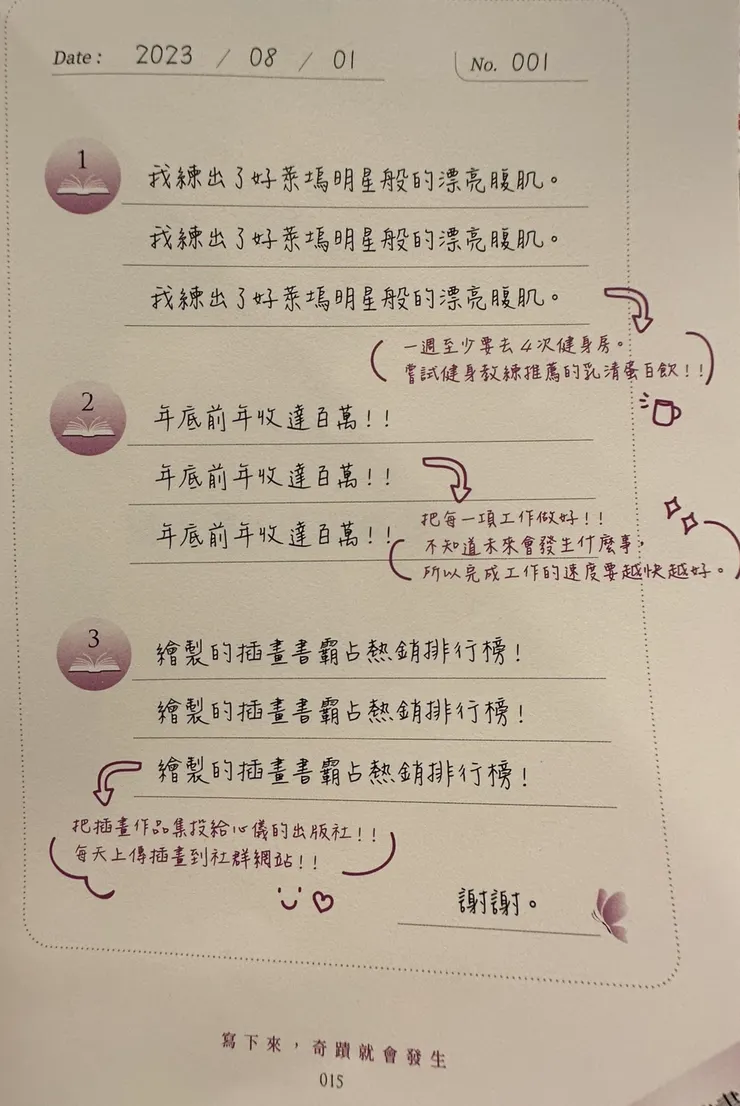 Date: 2023 / 08 / 01
No. 001
1
我練出了好萊塢明星般的漂亮腹肌。
我練出了好萊塢明星般的漂亮腹肌。
我練出了好萊塢明星般的漂亮腹肌。
一週至少要去4次健身房。
嘗試健身教練推薦的乳清蛋白飲!!
2
年底前年收達百萬!!
年底前年收達百萬!!
年底前年收達百萬!!
把每一項工作做好!!
不知道未來會發生什麼事,
所以完成工作的速度要越快越好。
3
繪製的插畫書霸占熱銷排行榜!
繪製的插畫書霸占熱銷排行榜!
繪製的插畫書霸占熱銷排行榜!
把插畫作品集投給心儀的出版社!!
每天上傳插畫到社群網站!!
謝謝。
寫下來,奇蹟就會發生
015